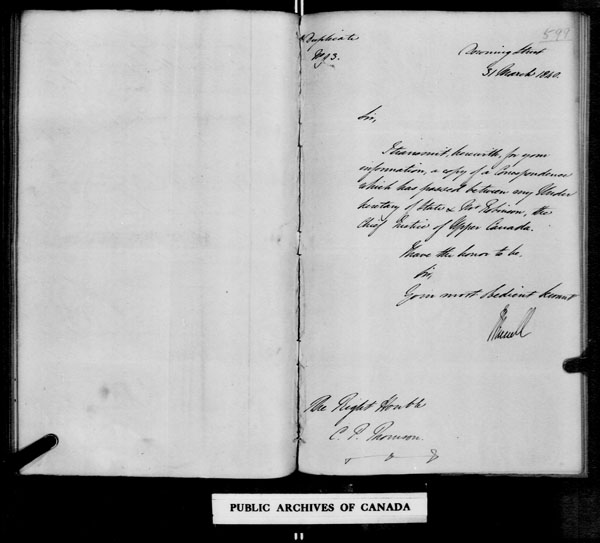 Duplicate
599
Downing Street
31 March 1840.
Sir,
I transmit, herewith, for your
information, a copy of a Correspondence
which has passed between my Under
Secretary of State & Mr Robinson, the
Chief Justice of Upper Canada.
I have the honor to be,
Sir,
Your most Obedient Servant
JRussell
The Right Honble
C. P. Thomson.
PUBLIC ARCHIVES OF CANADA